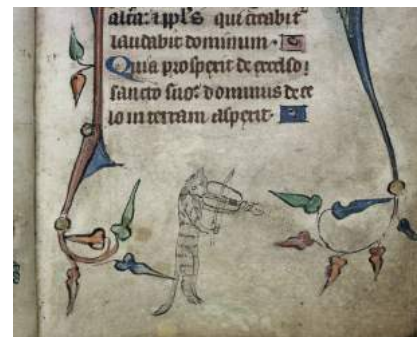 alt̾a: ⁊ ppl's qui creabit᷑
laudabit dominum·
Quia prospexit de excelso
sancto suo: dominus de ce
lo in terram aspexit·